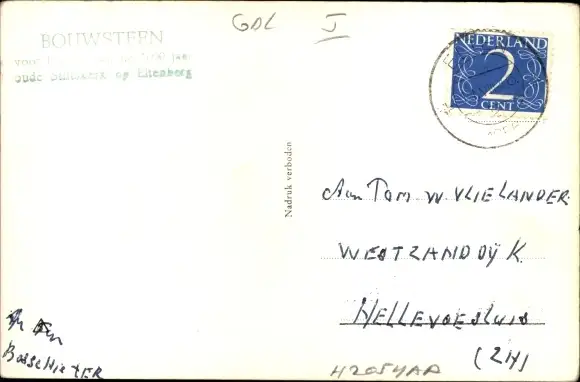 GDL I
BOUWSTEEN
voor jaar
oude op Eltenberg
NEDERLAND
2
CENT
Nadruk verboden
Aan Tom W. VLIELANDER
WESTZANDDIJK
HELLEVOETSLUIS
(ZH)
BOSSCHIETER
H2054AA